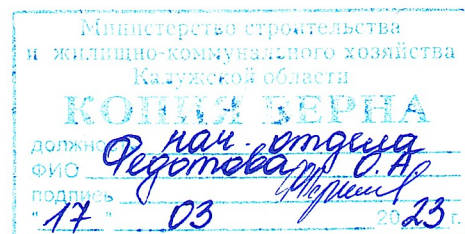 Министерство строительства
и жилищно-коммунального хозяйства
Калужской области
КОПИЯ ВЕРНА
должность нач. отдела
ФИО Федотова О.А.
подпись
"17" 03 2023 г.